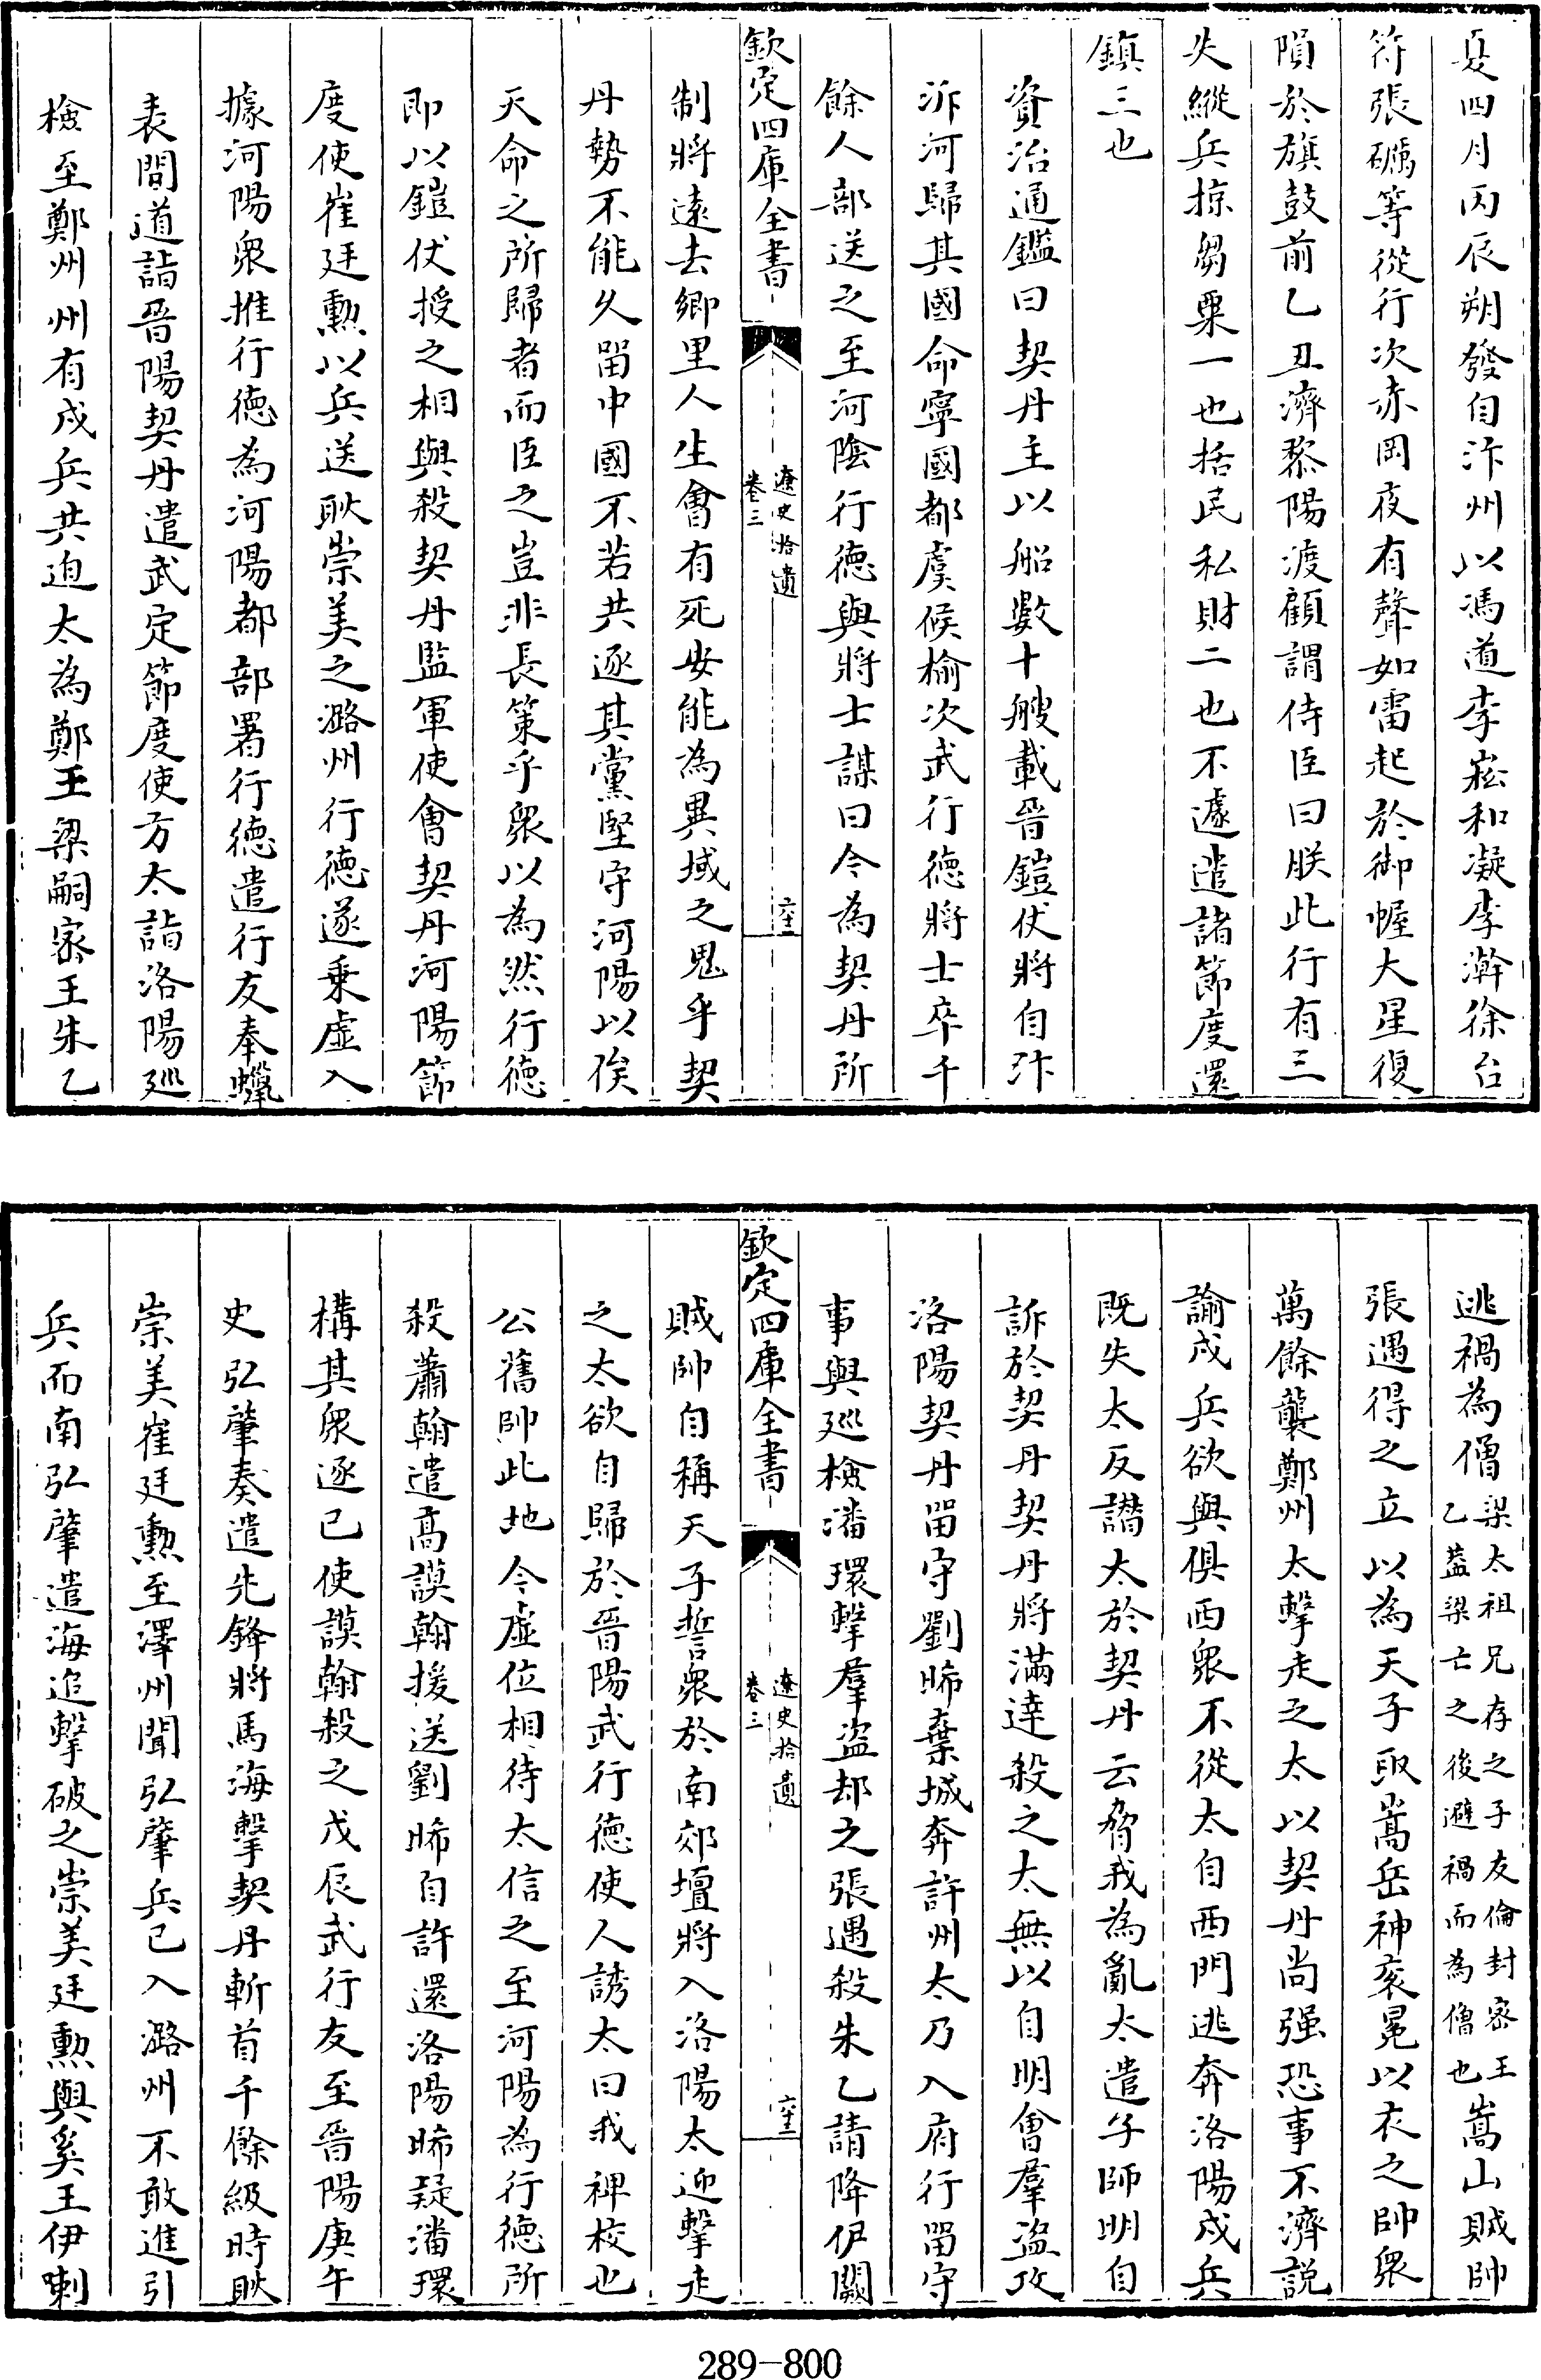 夏四月丙辰朔發自汴州以馮道李崧和凝李澣徐台
符張礪等從行次赤岡夜有聲如雷起於御幄大星復
隕於旗鼓前乙丑濟黎陽渡顧謂侍臣曰朕此行有三
失縱兵掠芻粟一也括民私財二也不遽遣諸節度還
鎮三也
資治通鑑曰契丹主以船數十艘載晉鎧仗將自汴
泝河歸其國命寧國都虞候榆次武行德將士卒千
餘人部送之至河陰行德與將士謀曰今為契丹所
欽定四庫全書
遼史拾遺
卷三
制將遠去鄉里人生會有死安能為異域之鬼乎契
丹勢不能久留中國不若共逐其黨堅守河陽以俟
天命之所歸者而臣之豈非長策乎衆以為然行德
即以鎧仗授之相與殺契丹監軍使會契丹河陽節
度使崔廷勲以兵送耿崇美之潞州行德遂乗虛入
據河陽衆推行德為河陽都部署行德遣行友奉蠟
表間道詣晉陽契丹遣武定節度使方太詣洛陽廵
檢至鄭州州有戍兵共迫太為鄭王梁嗣宻王朱乙
逃禍為僧梁太祖兄存之子友倫封宻王乙葢梁亡之後避禍而為僧也嵩山賊帥
張遇得之立以為天子取嵩岳神衮冕以衣之帥衆
萬餘襲鄭州太擊走之太以契丹尚强恐事不濟説
諭戍兵欲與俱西衆不從太自西門逃奔洛陽戍兵
既失太反譖太於契丹云脅我為亂太遣子師明自
訴於契丹契丹將滿達殺之太無以自明會羣盜攻
洛陽契丹留守劉晞棄城奔許州太乃入府行留守
事與廵檢潘環擊羣盜却之張遇殺朱乙請降伊闕
欽定四庫全書
遼史拾遺
卷三
賊帥自稱天子誓衆於南郊壇將入洛陽太迎擊走
之太欲自歸於晉陽武行德使人誘太曰我禆校也
公舊帥此地今虛位相待太信之至河陽為行德所
殺蕭翰遣高謨翰援送劉晞自許還洛陽晞疑潘環
構其衆逐已使謨翰殺之戊辰武行友至晉陽庚午
史弘肇奏遣先鋒將馬海擊契丹斬首千餘級時耿
崇美崔廷勲至澤州聞弘肇兵已入潞州不敢進引
兵而南弘肇遣海追擊破之崇美廷勲與奚王伊喇
289-800